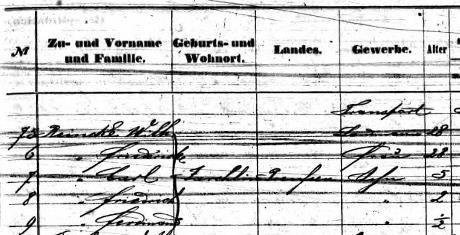 № Zu- und Vorname und Familie. Geburts- und Wohnort. Landes. Gewerbe. Alter
Transport
75 Reincke Wilh 28
6 " Friedrike Frau 28
7 " Carl Preussen Sohn 5
8 " Friedrich " 2
9 " Ferdinand " ½